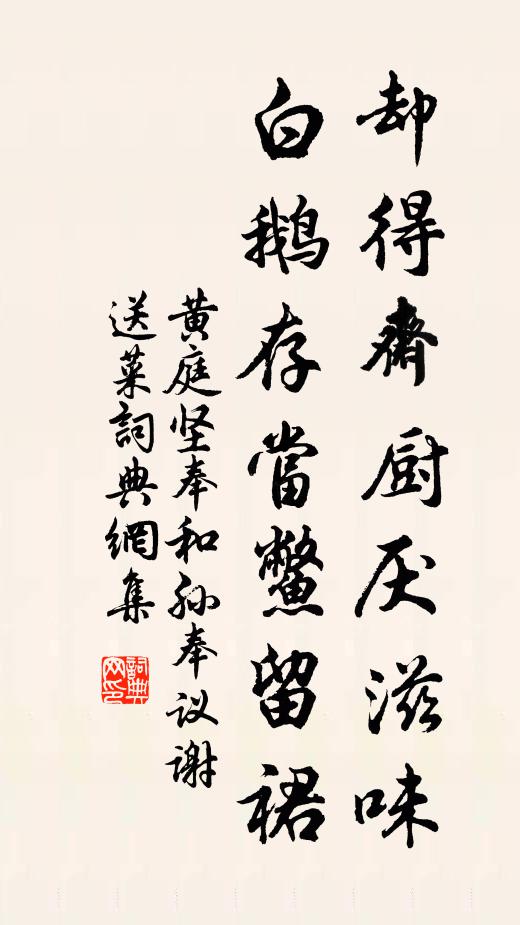 却得齋厨厌滋味
白鹅存當鳖留裙
黄庭坚奉和孙奉议谢
送菜詞典網集
詞典网印